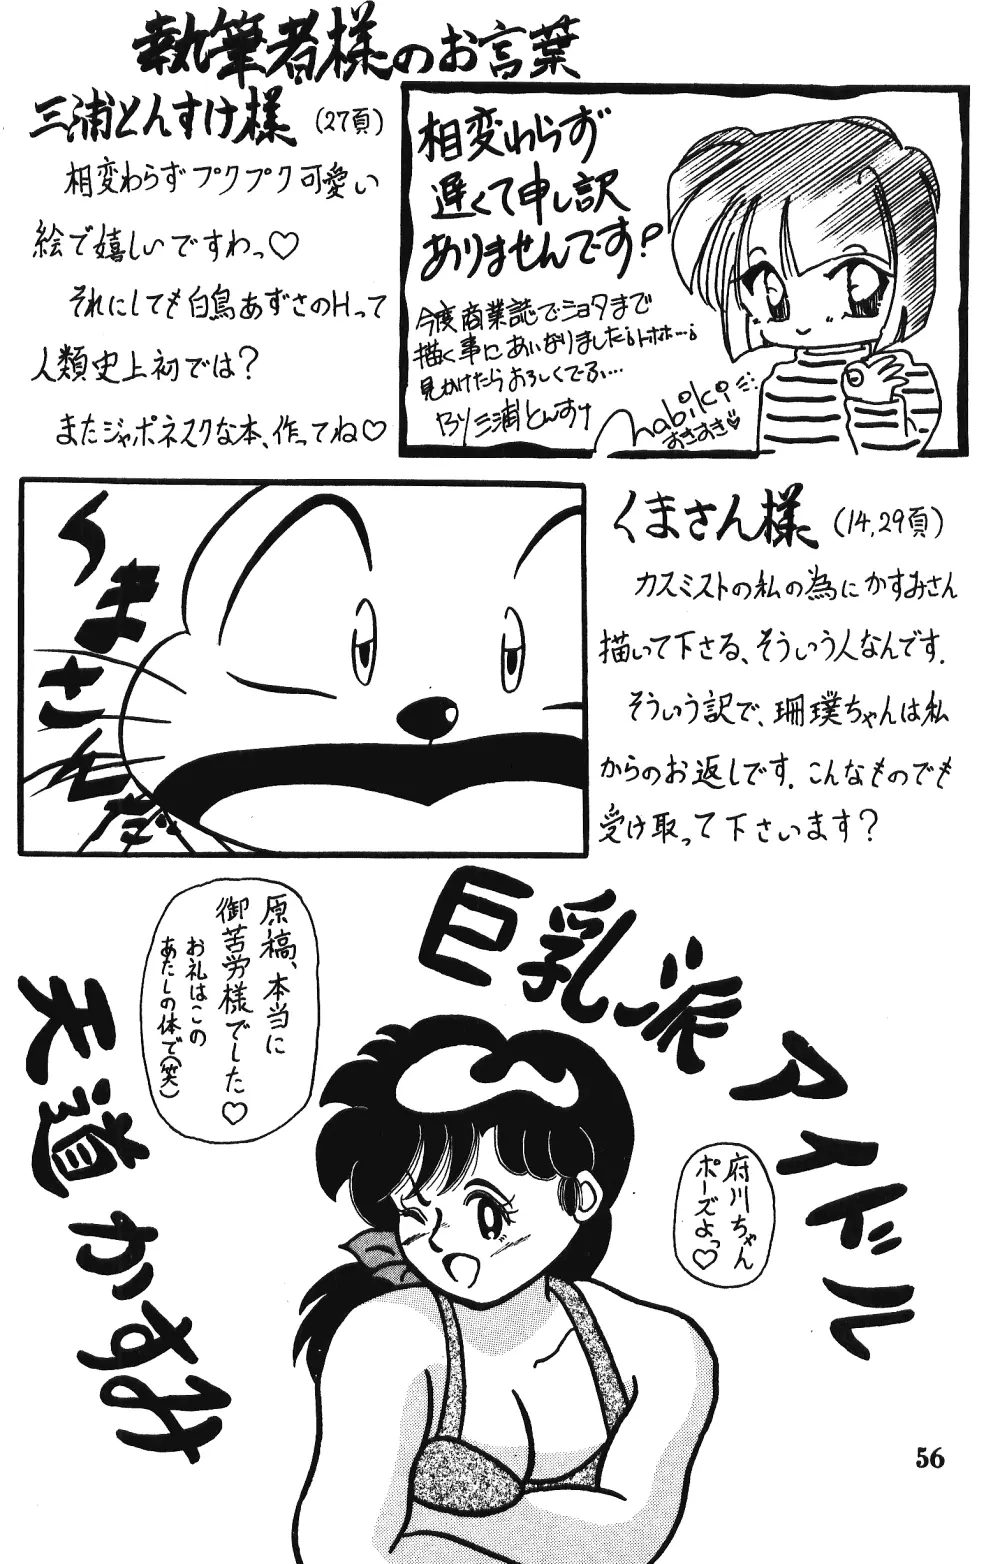 執筆者様のお言葉
三浦とんすけ様 (27頁)
相変わらずプクプク可愛い
絵で嬉しいですわっ♡
それにしても白鳥あずさのHって
人類史上初では?
またジャポネスクな本、作ってね♡
相変わらず
遅くて申し訳
ありませんです?
今度商業誌でショタまで
描く事にあいなりました。トホホ…。
見かけたらよろしくでふ…
BY 三浦とんすけ
nabiki
おきすき♡
くまさん様 (14,29頁)
カスミストの私の為にかすみさん
描いて下さる、そういう人なんです.
そういう訳で、珊璞ちゃんは私
からのお返しです. こんなものでも
受け取って下さいます?
くまさんだ
原稿、本当に
御苦労様でした♡
お礼はこの
あたしの体で(笑)
巨乳派アイドル
天道かすみ
府川ちゃん
ポーズよっ♡
56